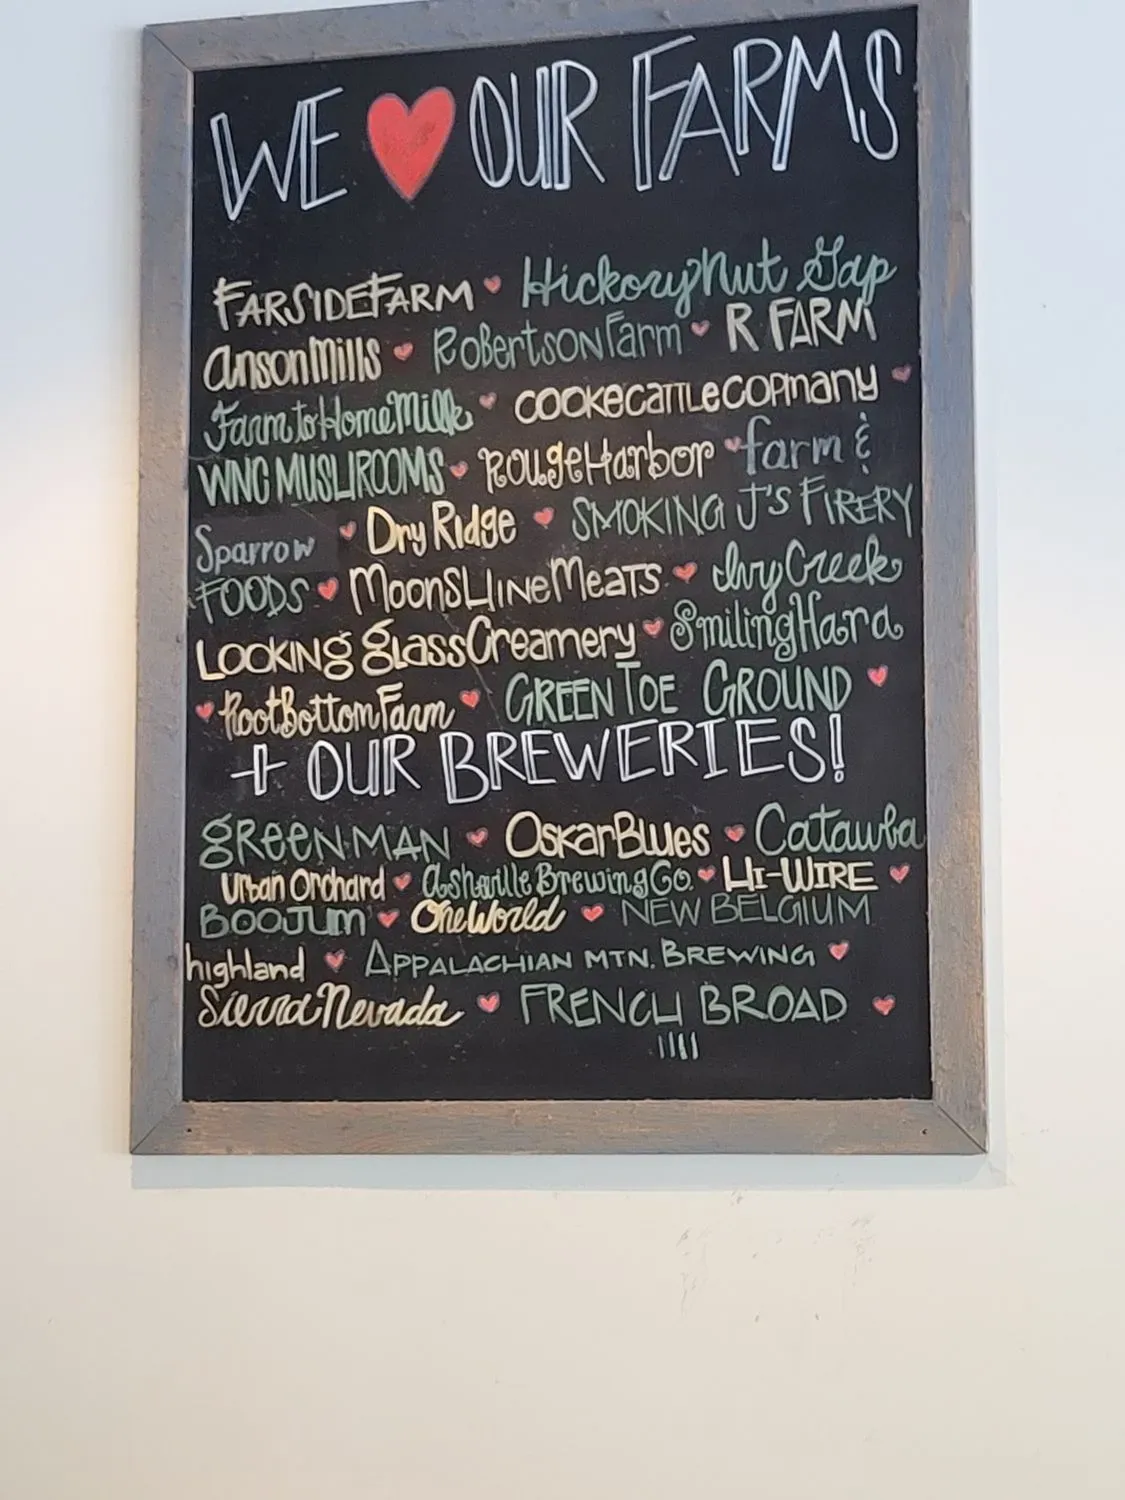 WE ♥ OUR FARMS
FARSIDEFARM ♥ HickoryNut Gap
ansonMills ♥ RobertsonFarm ♥ R FARM
Farm to HomeMilk ♥ COOKECATTLECOPMANY ♥
WNC MUSHROOMS ♥ ROUgeHarbor ♥ farm &
Sparrow ♥ Dry Ridge ♥ SMOKING J'S FIRERY
FOODS ♥ MOONSHINE MEATS ♥ IvyCreek
LOOKING glassCreamery ♥ SmilingHara
♥ RootBottomFarm ♥ GREEN TOE GROUND ♥
+ OUR BREWERIES!
gReeNMAN ♥ OskarBlues ♥ Catawba
Urban Orchard ♥ ashevilleBrewingCo. ♥ HI-WIRE ♥
BOOJUM ♥ OneWorld ♥ NEW BELGIUM
highland ♥ APPALACHIAN MTN. BREWING ♥
SierraNevada ♥ FRENCH BROAD ♥